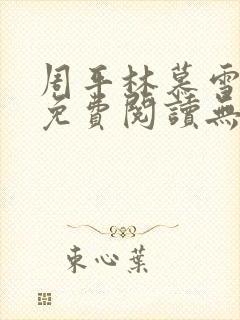 周平林慕雪
免費閱讀無
束心葉